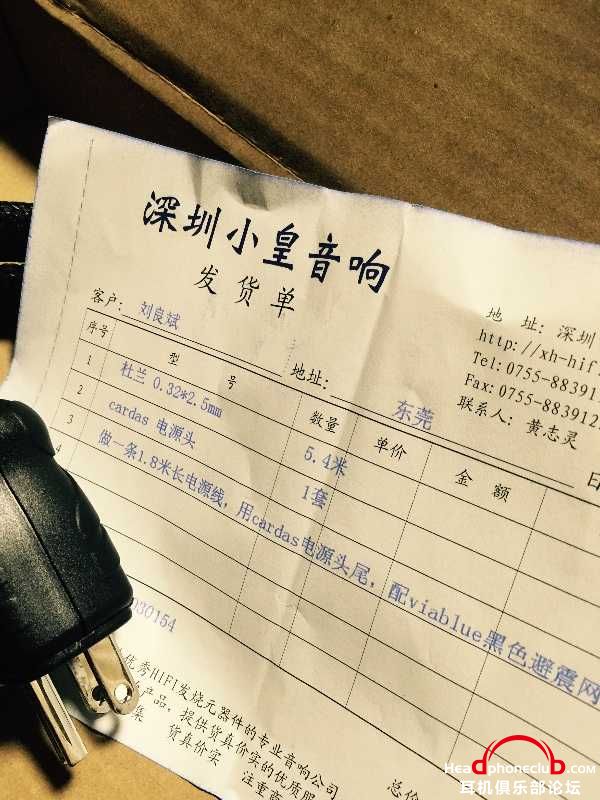 深圳小皇音响
发货单
地 址: 深圳
http://xh-hif
Tel:0755-88391
Fax:0755-883912
联系人: 黄志灵
客户: 刘良斌
地址: 东莞
序号 型 号 数量 单价 金 额
1 杜兰 0.32*2.5mm 5.4米
2 cardas 电源头 1套
3 做一条1.8米长电源线, 用cardas电源头尾, 配viablue黑色避震网
4
030154
优秀HIFI发烧元器件的专业音响公司
产品, 提供货真价实的优质服
集 货真价实 注重商
总价
Headphoneclub.com
耳机俱乐部论坛